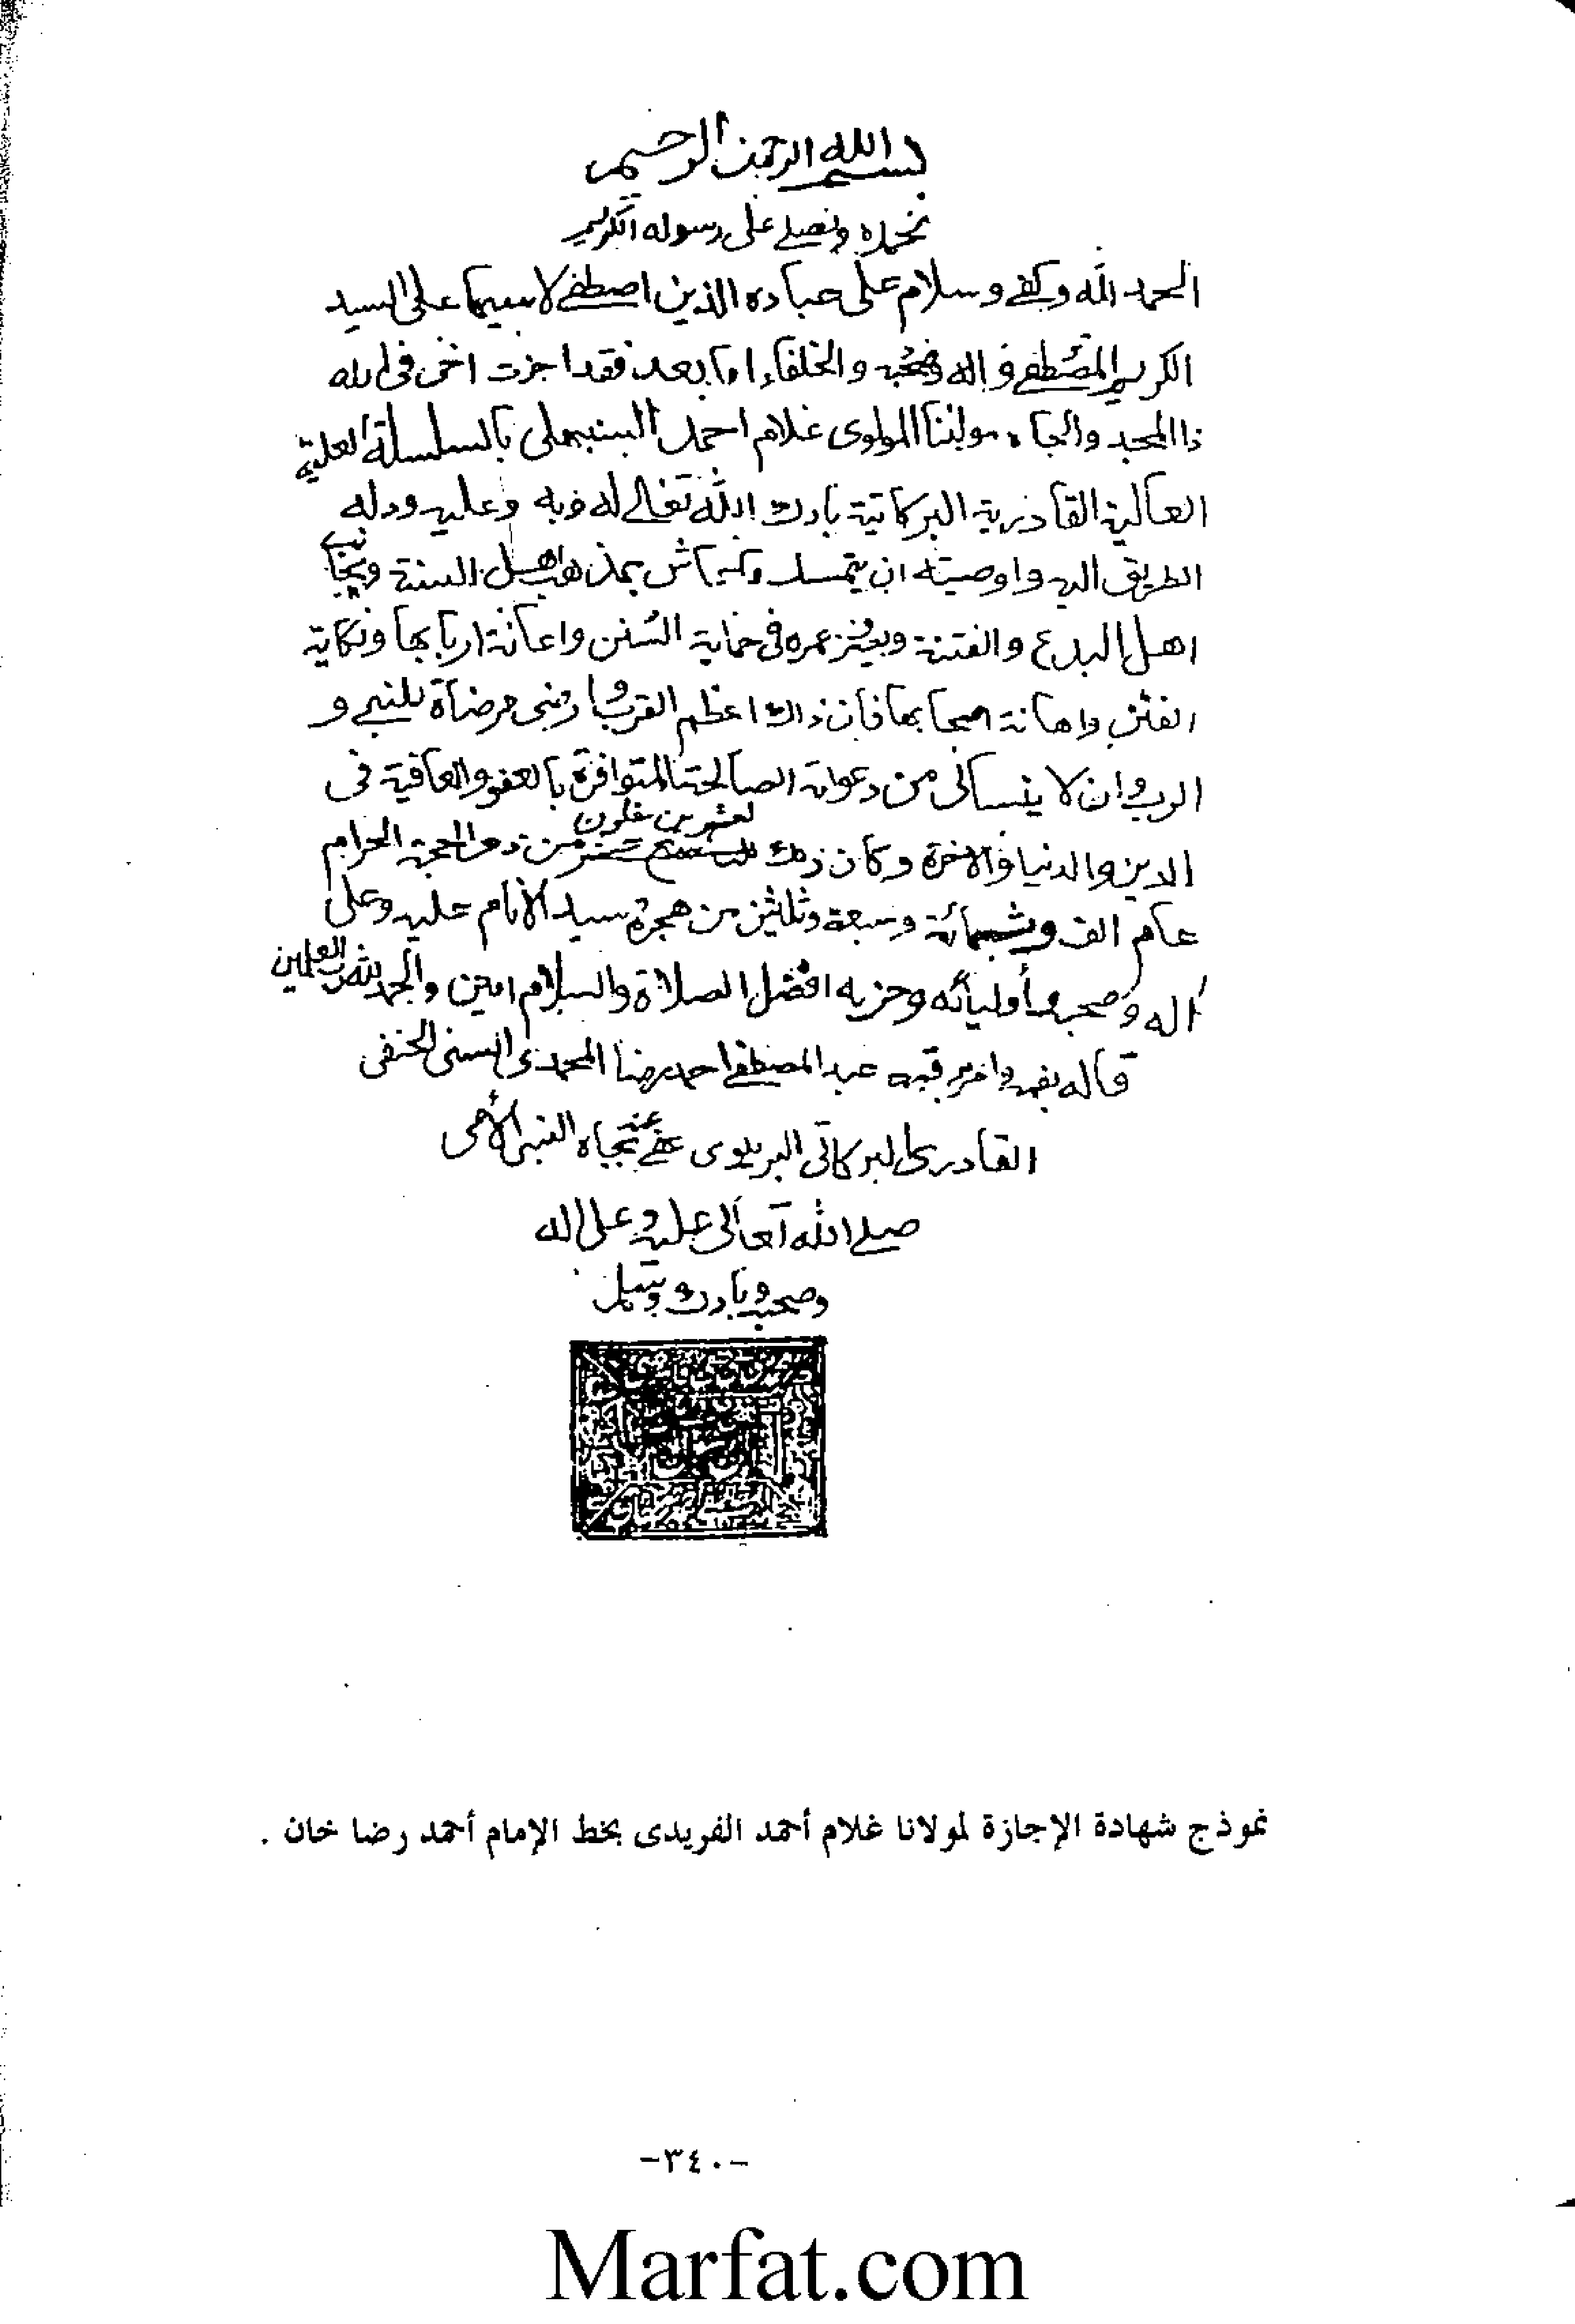 بسم الله الرحمن الرحيم
نحمده ونصلے على رسوله الكريم
الحمد لله وكفے وسلام على عباده الذين اصطفے لا سيما على السيد
الكريم المصطفے واله وصحبه والخلفاء اما بعد فقد اجزت اخى فى الله
ذا المجد والجاه مولينا المولوى غلام احمد السنبهلى بالسلسلة العلية
العالية القادرية البركاتية بارك الله تعالے له وبه وعليه
الطريق اليه واوصيته ان يتمسك بمذهب اهل السنة
اهل البدع والفتنة عمره فى حماية السنن واعانة اربابها ونكاية
الفتن واهانة اصحابها فان ذلك اعظم القرب وارضى مرضاة للنبے و
الرب وان لا ينسانى من دعواته الصالحة المتوافرة بالعفو والعافية فى
لعشرين خلون
الدين والدنيا والاخرة وكان ذلك من ذى الحجة الحرام
عام الف وثلثمائة وسبعة وثلثين من هجرة سيد الأنام عليه وعلى
اله وصحبه وأوليائه وحزبه افضل الصلاة والسلام امين والحمد لله رب العلمين
قاله بفمه وامر برقمه عبد المصطفے احمد رضا المحمدى السنى الحنفى
القادرى البركاتى البريلوى عفے عنه بجاه النبى الأمى
صلے الله تعالى عليه وعلى اله
وصحبه وبارك وسلم
نموذج شهادة الإجازة لمولانا غلام أحمد الفريدى بخط الإمام أحمد رضا خان .
-٣٤٠-
Marfat.com